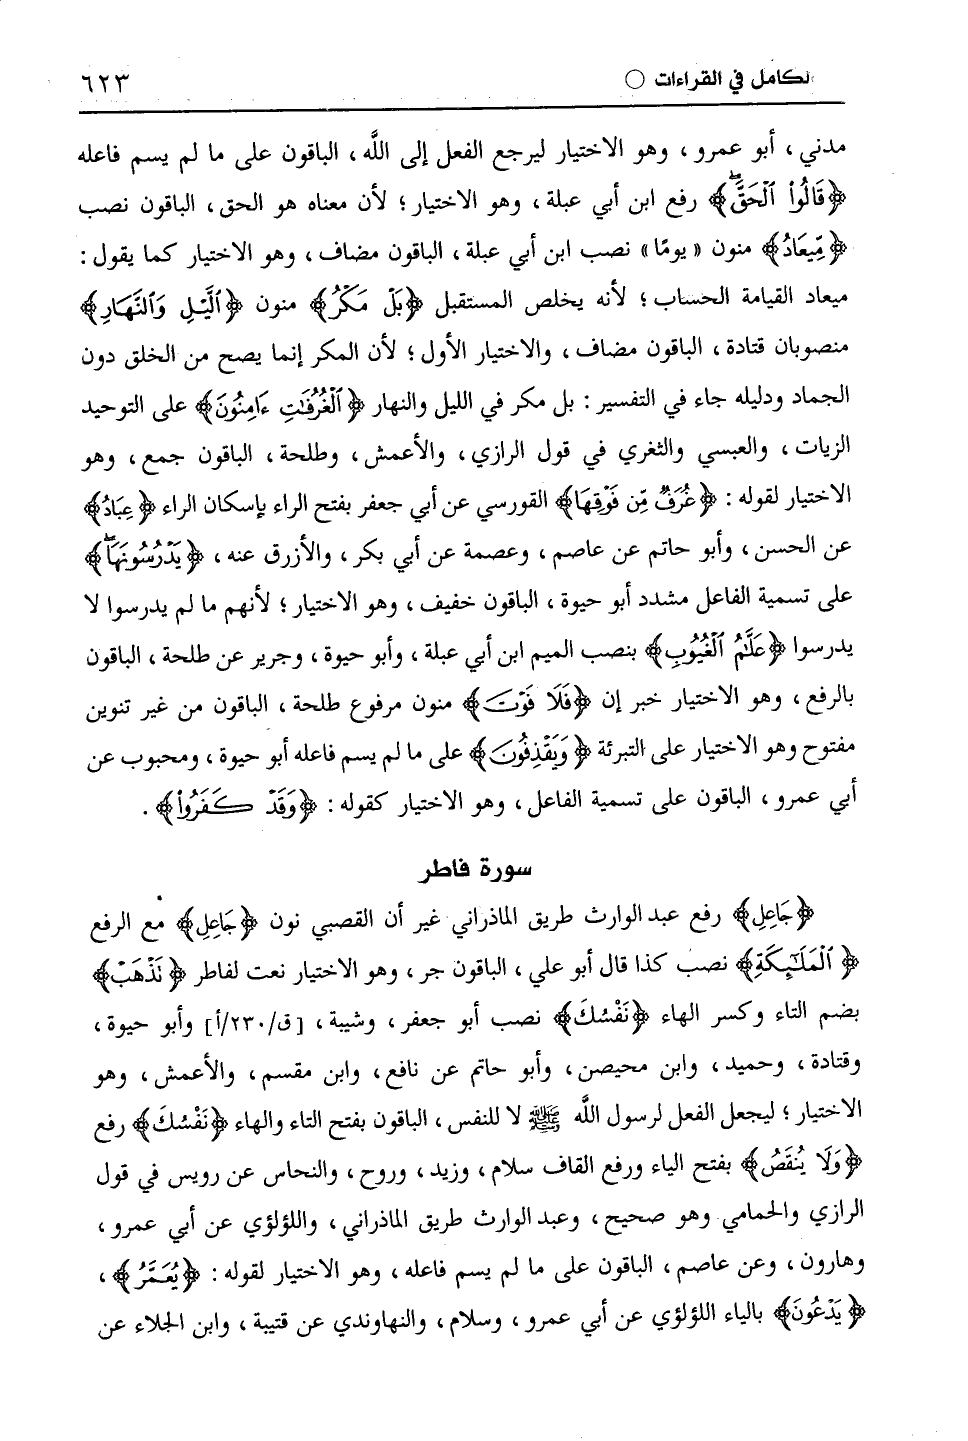 لكامل في القراءات ○ ٦٢٣
مدني ، أبو عمرو ، وهو الاختيار ليرجع الفعل إلى اللَّه ، الباقون على ما لم يسم فاعله
﴿قَالُواْ ٱلْحَقَّۖ﴾ رفع ابن أبي عبلة ، وهو الاختيار ؛ لأن معناه هو الحق ، الباقون نصب
﴿مِّيعَادُ﴾ منون « يومًا » نصب ابن أبي عبلة ، الباقون مضاف ، وهو الاختيار كما يقول :
ميعاد القيامة الحساب ؛ لأنه يخلص المستقبل ﴿بَلْ مَكْرُ﴾ منون ﴿ٱلَّيْلِ وَٱلنَّهَارِ﴾
منصوبان قتادة ، الباقون مضاف ، والاختيار الأول ؛ لأن المكر إنما يصح من الخلق دون
الجماد ودليله جاء في التفسير : بل مكر في الليل والنهار ﴿ٱلْغُرُفَٰتِ ءَامِنُونَ﴾ على التوحيد
الزيات ، والعبسي والثغري في قول الرازي ، والأعمش ، وطلحة ، الباقون جمع ، وهو
الاختيار لقوله : ﴿غُرَفٌ مِّن فَوْقِهَا﴾ القورسي عن أبي جعفر بفتح الراء بإسكان الراء ﴿عِبَادُ﴾
عن الحسن ، وأبو حاتم عن عاصم ، وعصمة عن أبي بكر ، والأزرق عنه ، ﴿يَدْرُسُونَهَاۖ﴾
على تسمية الفاعل مشدد أبو حيوة ، الباقون خفيف ، وهو الاختيار ؛ لأنهم ما لم يدرسوا لا
يدرسوا ﴿عَلَّٰمُ ٱلْغُيُوبِ﴾ بنصب الميم ابن أبي عبلة ، وأبو حيوة ، وجرير عن طلحة ، الباقون
بالرفع ، وهو الاختيار خبر إن ﴿فَلَا فَوْتَ﴾ منون مرفوع طلحة ، الباقون من غير تنوين
مفتوح وهو الاختيار على التبرئة ﴿وَيَقْذِفُونَ﴾ على ما لم يسم فاعله أبو حيوة ، ومحبوب عن
أبي عمرو ، الباقون على تسمية الفاعل ، وهو الاختيار كقوله : ﴿وَقَدْ كَفَرُواْ﴾ .
سورة فاطر
﴿جَاعِلِ﴾ رفع عبد الوارث طريق الماذراني غير أن القصبي نون ﴿جَاعِلِ﴾ مع الرفع
﴿ٱلْمَلَٰٓئِكَةِ﴾ نصب كذا قال أبو علي ، الباقون جر ، وهو الاختيار نعت لفاطر ﴿تَذْهَبْ﴾
بضم التاء وكسر الهاء ﴿نَفْسُكَ﴾ نصب أبو جعفر ، وشيبة ، [ق/٢٣٠/أ] وأبو حيوة ،
وقتادة ، وحميد ، وابن محيصن ، وأبو حاتم عن نافع ، وابن مقسم ، والأعمش ، وهو
الاختيار ؛ ليجعل الفعل لرسول اللَّه ﷺ لا للنفس ، الباقون بفتح التاء والهاء ﴿نَفْسُكَ﴾ رفع
﴿وَلَا يُنقَصُ﴾ بفتح الياء ورفع القاف سلام ، وزيد ، وروح ، والنحاس عن رويس في قول
الرازي والحمامي وهو صحيح ، وعبد الوارث طريق الماذراني ، واللؤلؤي عن أبي عمرو ،
وهارون ، وعن عاصم ، الباقون على ما لم يسم فاعله ، وهو الاختيار لقوله : ﴿يُعَمَّرُ﴾ ،
﴿يَدْعُونَ﴾ بالياء اللؤلؤي عن أبي عمرو ، وسلام ، والنهاوندي عن قتيبة ، وابن الجلاء عن